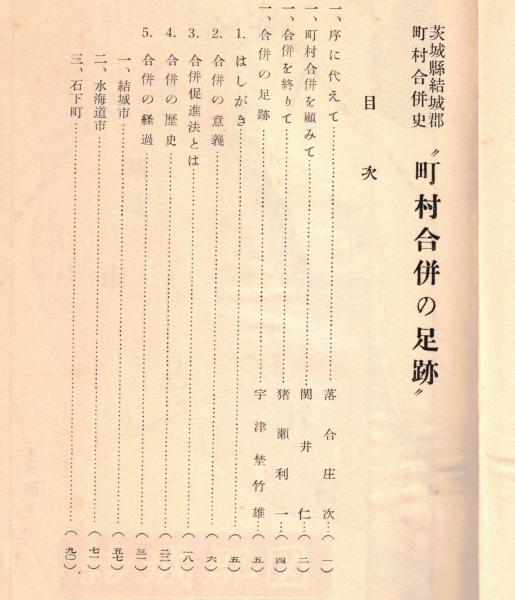 茨城縣結城郡
町村合併史
〝町村合併の足跡〟
目次
一、序に代えて……落合庄次…(一)
一、町村合併を顧みて……関井仁…(二)
一、合併を終りて……猪瀬利一…(四)
一、合併の足跡……宇津埜竹雄…(五)
1. はしがき……(五)
2. 合併の意義……(六)
3. 合併促進法とは……(一八)
4. 合併の歴史……(二二)
5. 合併の経過……(三一)
一、結城市……(五七)
二、水海道市……(七一)
三、石下町……(九〇)